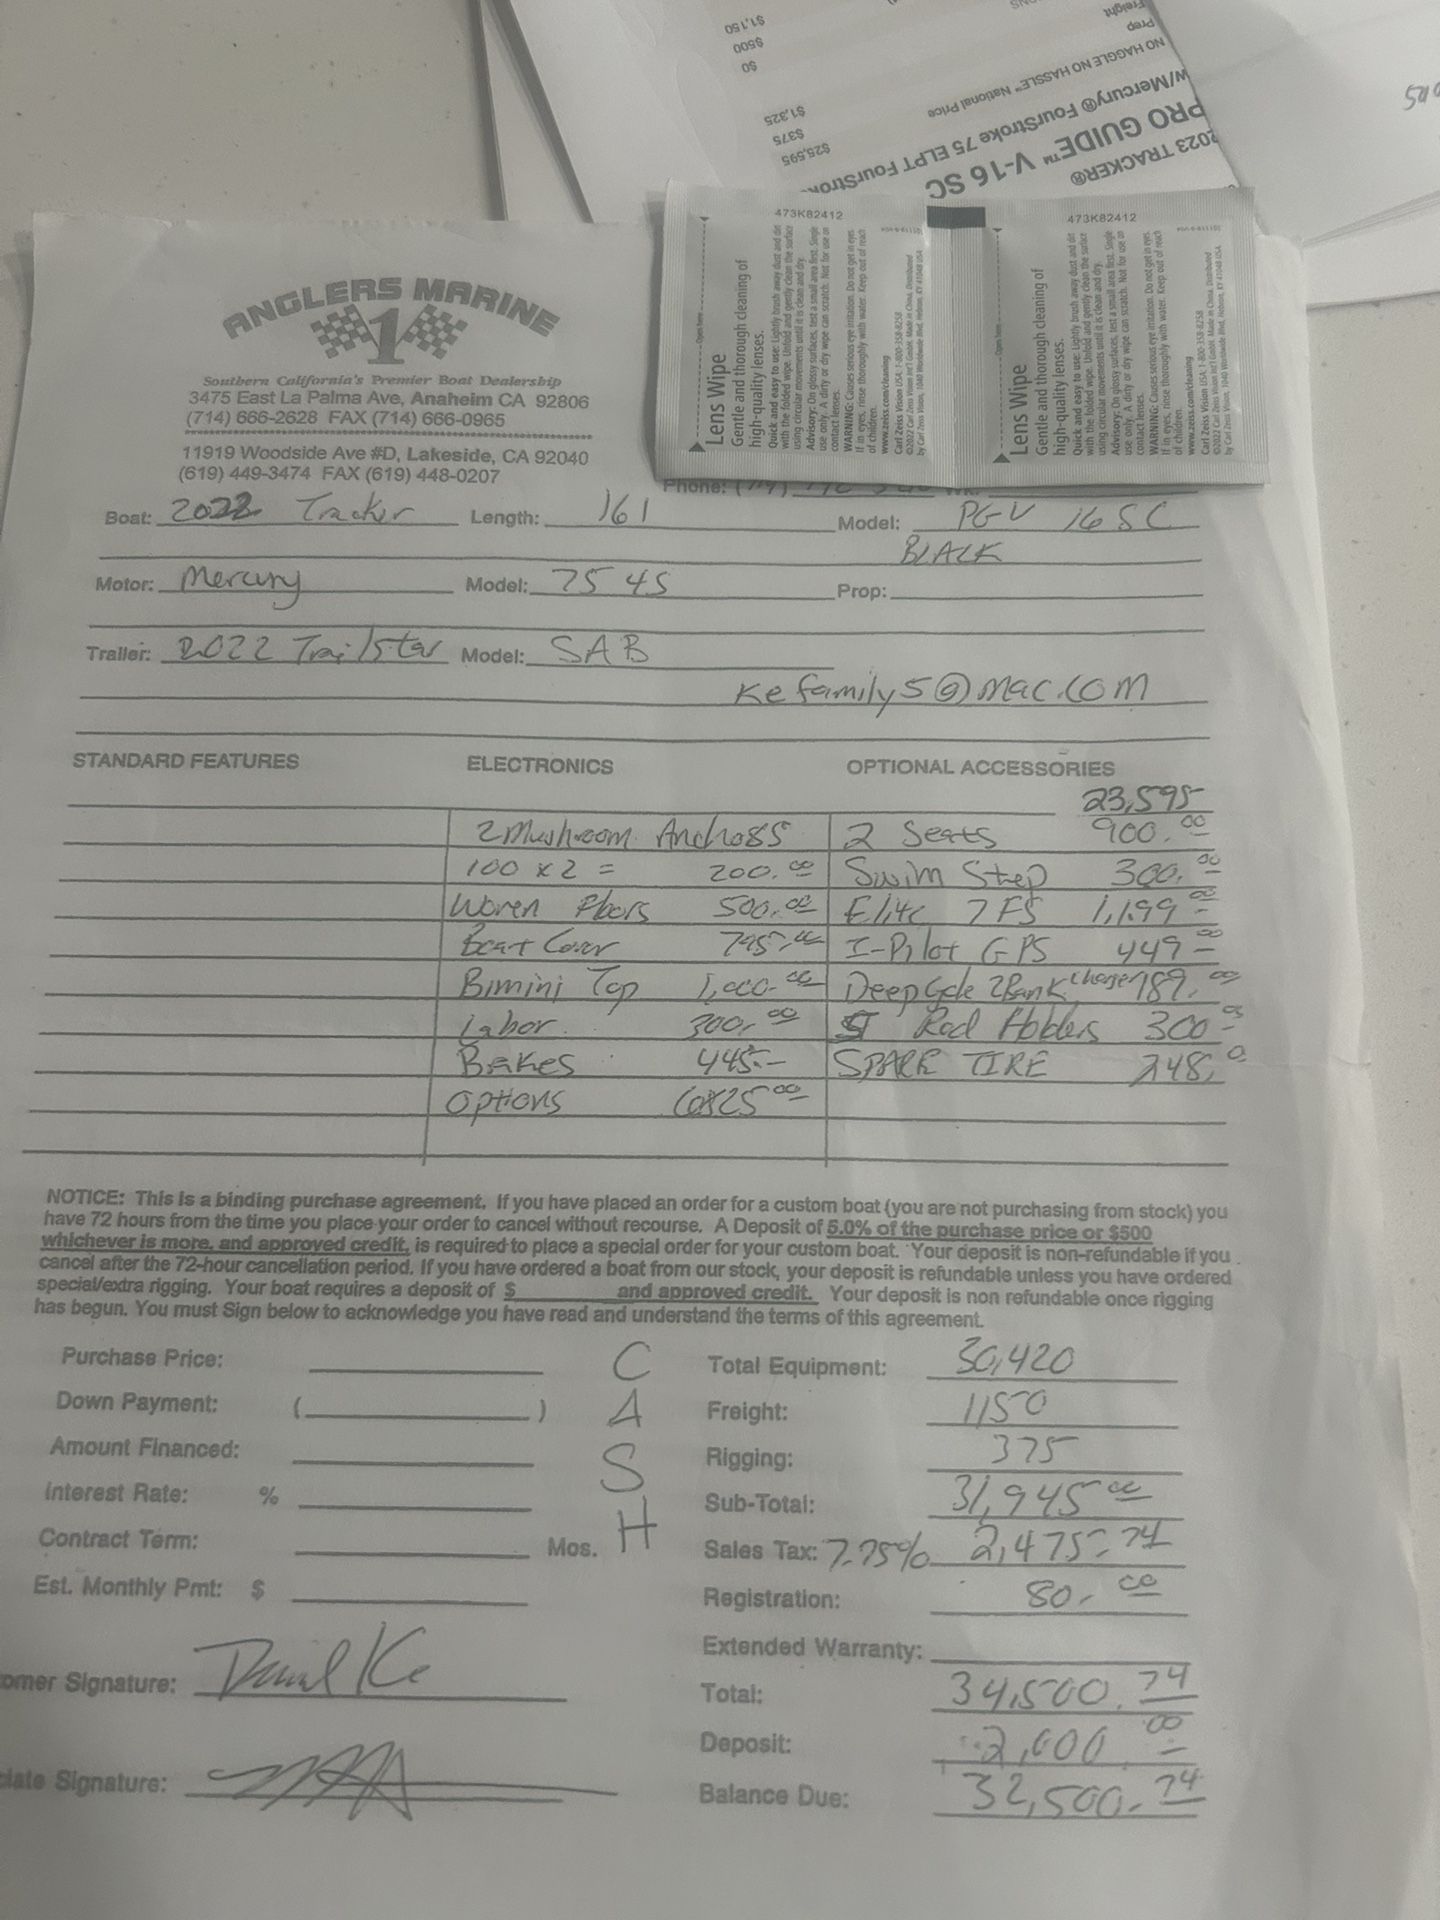 $1,150
$500
$0
Freight
Prep
NO HAGGLE NO HASSLE™ National Price
$1,325
$375
$25,595
w/Mercury® FourStroke 75 ELPT FourStrok
PRO GUIDE™ V-16 SC
2023 TRACKER®
473K82412
473K82412
Open here
Lens Wipe
Gentle and thorough cleaning of
high-quality lenses.
Quick and easy to use: Lightly brush away dust and dirt
with the folded wipe. Unfold and gently clean the surface
using circular movements until it is clean and dry.
Advisory: On glossy surfaces, test a small area first. Single
use only. A dirty or dry wipe can scratch. Not for use on
contact lenses.
WARNING: Causes serious eye irritation. Do not get in eyes.
If in eyes, rinse thoroughly with water. Keep out of reach
of children.
www.zeiss.com/cleaning
Carl Zeiss Vision USA: 1-800-358-8258
©2022 Carl Zeiss Vision Int'l GmbH. Made in China. Distributed
by Carl Zeiss Vision, 1040 Worldwide Blvd, Hebron, KY 41048 USA
Open here
Lens Wipe
Gentle and thorough cleaning of
high-quality lenses.
Quick and easy to use: Lightly brush away dust and dirt
with the folded wipe. Unfold and gently clean the surface
using circular movements until it is clean and dry.
Advisory: On glossy surfaces, test a small area first. Single
use only. A dirty or dry wipe can scratch. Not for use on
contact lenses.
WARNING: Causes serious eye irritation. Do not get in eyes.
If in eyes, rinse thoroughly with water. Keep out of reach
of children.
www.zeiss.com/cleaning
Carl Zeiss Vision USA: 1-800-358-8258
©2022 Carl Zeiss Vision Int'l GmbH. Made in China. Distributed
by Carl Zeiss Vision, 1040 Worldwide Blvd, Hebron, KY 41048 USA
ANGLERS MARINE
1
Southern California's Premier Boat Dealership
3475 East La Palma Ave, Anaheim CA 92806
(714) 666-2628 FAX (714) 666-0965
11919 Woodside Ave #D, Lakeside, CA 92040
(619) 449-3474 FAX (619) 448-0207
Phone:
Boat: 2022 Tracker Length: 161 Model: PGV 16 SC
BLACK
Motor: Mercury Model: 75 4S Prop:
Trailer: 2022 Trailstar Model: SAB
Kefamily5@mac.com
STANDARD FEATURES ELECTRONICS OPTIONAL ACCESSORIES
23,595
2 Mushroom Anchors 2 Seats 900.00
100 x 2 = 200.00 Swim Step 300.00
Woven Floors 500.00 Elite 7 FS 1,199.00
Boat Cover 795.00 I-Pilot GPS 449.00
Bimini Top 1,000.00 Deep Cycle 2Bank Charger 189.00
Labor 300.00 Rod Holders 300.00
Brakes 445.- SPARE TIRE 248.0
Options 6825.00
NOTICE: This is a binding purchase agreement. If you have placed an order for a custom boat (you are not purchasing from stock) you
have 72 hours from the time you place your order to cancel without recourse. A Deposit of 5.0% of the purchase price or $500
whichever is more, and approved credit, is required to place a special order for your custom boat. Your deposit is non-refundable if you
cancel after the 72-hour cancellation period. If you have ordered a boat from our stock, your deposit is refundable unless you have ordered
special/extra rigging. Your boat requires a deposit of $ and approved credit. Your deposit is non refundable once rigging
has begun. You must Sign below to acknowledge you have read and understand the terms of this agreement.
Purchase Price:
Down Payment: ( )
Amount Financed:
Interest Rate: %
Contract Term: Mos.
Est. Monthly Pmt: $
C
A
S
H
Total Equipment: 30,420
Freight: 1150
Rigging: 375
Sub-Total: 31,945.00
Sales Tax: 7.75% 2,475.74
Registration: 80.00
Extended Warranty:
Total: 34,500.74
Deposit: 2,000.00
Balance Due: 32,500.74
omer Signature: Daniel Ke
ciate Signature: